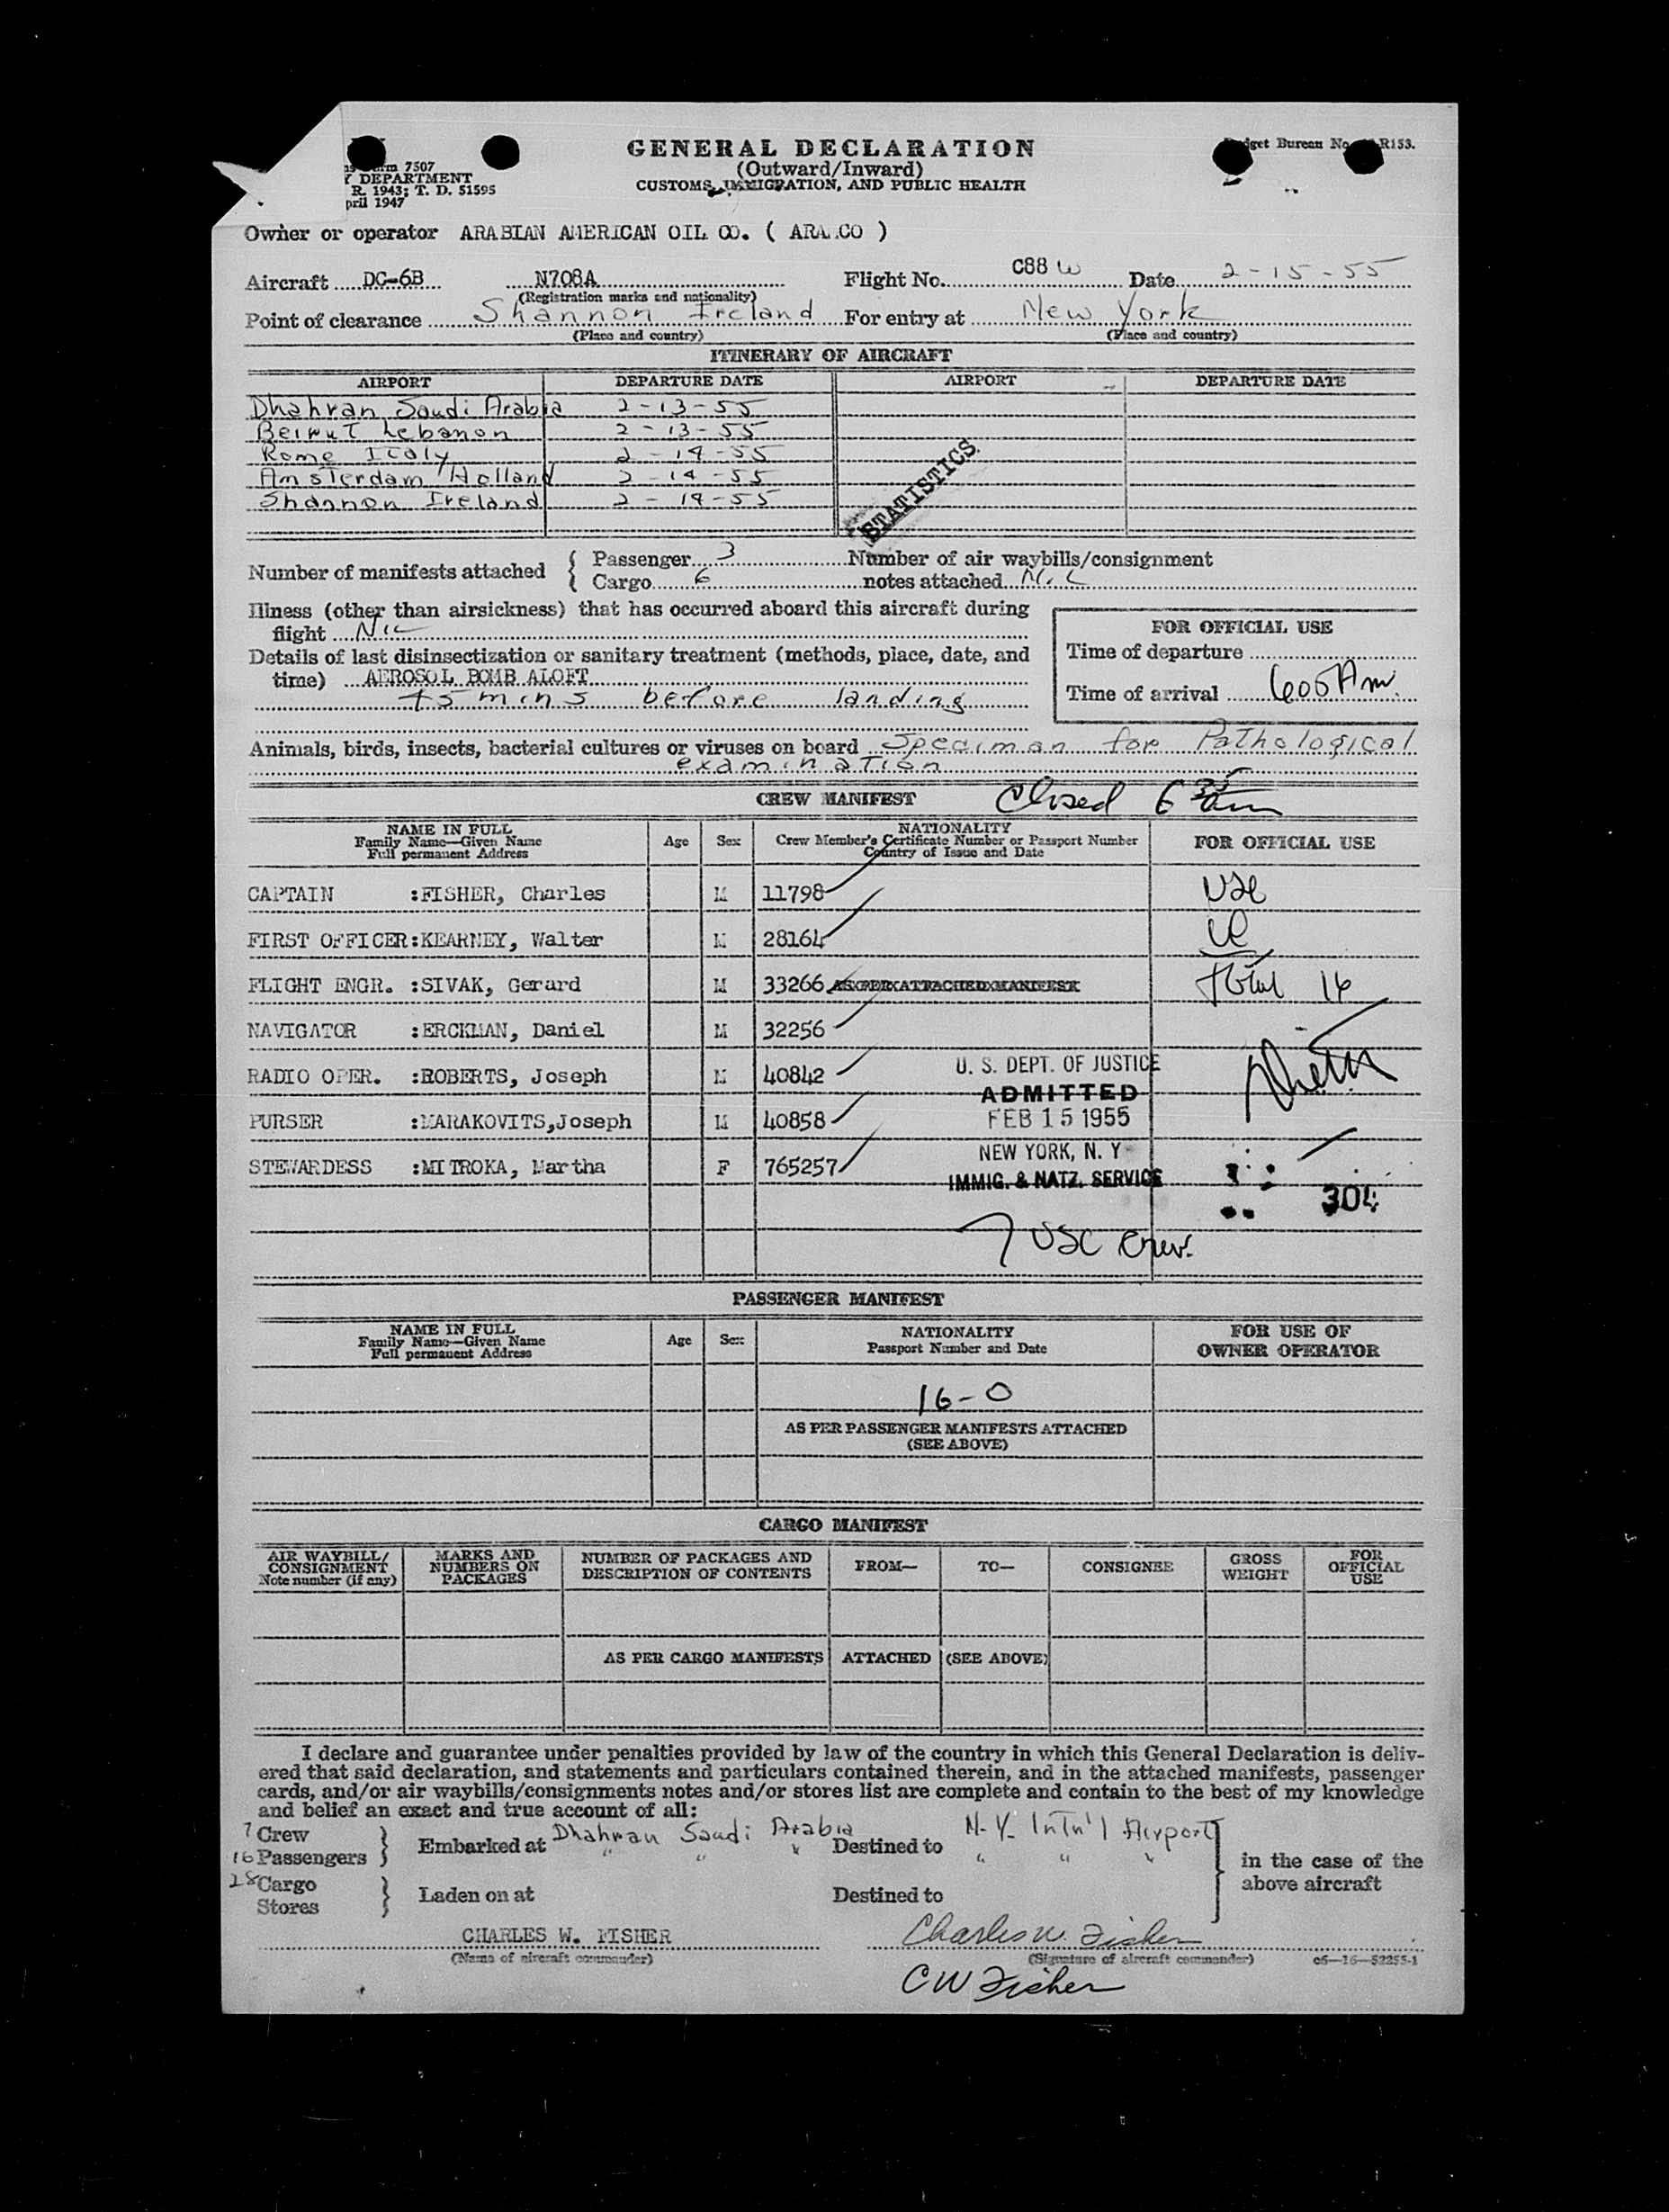 7507
DEPARTMENT
R. 1943; T. D. 51595
pril 1947
GENERAL DECLARATION
(Outward/Inward)
CUSTOMS, IMMIGRATION, AND PUBLIC HEALTH
get Bureau No. R153.
Owner or operator ARABIAN AMERICAN OIL CO. ( ARA.CO )
Aircraft DC-6B N708A Flight No. C88 W Date 2-15-55
(Registration marks and nationality)
Point of clearance Shannon Ireland For entry at New York
(Place and country) (Place and country)
ITINERARY OF AIRCRAFT
AIRPORT DEPARTURE DATE AIRPORT DEPARTURE DATE
Dhahran Saudi Arabia 2-13-55
Beirut Lebanon 2-13-55
Rome Italy 2-14-55
Amsterdam Holland 2-14-55
Shannon Ireland 2-14-55
STATISTICS
Number of manifests attached { Passenger 3 Number of air waybills/consignment
Cargo 6 notes attached NiL
Illness (other than airsickness) that has occurred aboard this aircraft during
flight NiL
FOR OFFICIAL USE
Details of last disinsectization or sanitary treatment (methods, place, date, and
time) AEROSOL BOMB ALOFT
45 mins before landing
Time of departure
Time of arrival 605 Am.
Animals, birds, insects, bacterial cultures or viruses on board Speciman for Pathological
examination
CREW MANIFEST Closed 6 35 am
NAME IN FULL
Family Name—Given Name
Full permanent Address
Age Sex
NATIONALITY
Crew Member's Certificate Number or Passport Number
Country of Issue and Date
FOR OFFICIAL USE
CAPTAIN :FISHER, Charles M 11798
FIRST OFFICER:KEARNEY, Walter M 28164
FLIGHT ENGR. :SIVAK, Gerard M 33266 AS PER ATTACHED MANIFEST Total 16
NAVIGATOR :ERCKMAN, Daniel M 32256
RADIO OPER. :ROBERTS, Joseph M 40842
PURSER :MARAKOVITS,Joseph M 40858
STEWARDESS :MITROKA, Martha F 765257
U. S. DEPT. OF JUSTICE
ADMITTED
FEB 15 1955
NEW YORK, N. Y
IMMIG. & NATZ. SERVICE
304
7 USC Crew.
PASSENGER MANIFEST
NAME IN FULL
Family Name—Given Name
Full permanent Address
Age Sex
NATIONALITY
Passport Number and Date
FOR USE OF
OWNER OPERATOR
16-0
AS PER PASSENGER MANIFESTS ATTACHED
(SEE ABOVE)
CARGO MANIFEST
AIR WAYBILL/
CONSIGNMENT
Note number (if any)
MARKS AND
NUMBERS ON
PACKAGES
NUMBER OF PACKAGES AND
DESCRIPTION OF CONTENTS
FROM—
TO—
CONSIGNEE
GROSS
WEIGHT
FOR
OFFICIAL
USE
AS PER CARGO MANIFESTS ATTACHED (SEE ABOVE)
I declare and guarantee under penalties provided by law of the country in which this General Declaration is deliv-
ered that said declaration, and statements and particulars contained therein, and in the attached manifests, passenger
cards, and/or air waybills/consignments notes and/or stores list are complete and contain to the best of my knowledge
and belief an exact and true account of all:
7 Crew
16 Passengers } Embarked at Dhahran Saudi Arabia Destined to N.Y. Int'n'l Airport
" " " " " "
in the case of the
above aircraft
28 Cargo
Stores } Laden on at Destined to
CHARLES W. FISHER Charles W. Fisher
(Name of aircraft commander) (Signature of aircraft commander) c6—16—52255-1
CW Fisher